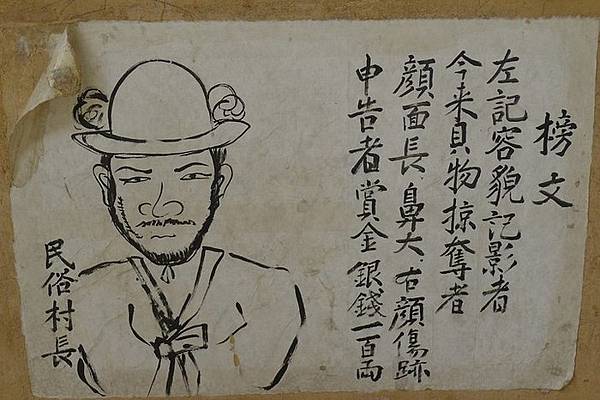 榜文
左記容貌記影者
今来貝物掠奪者
顔面長、鼻大、右顔傷跡
申告者賞金銀錢一百両
民俗村長